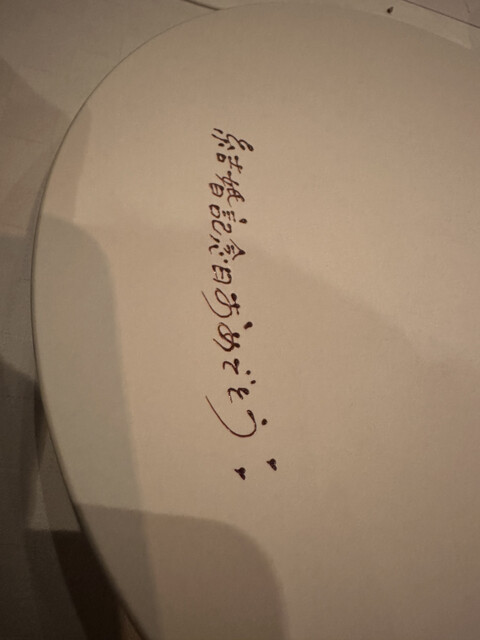 結婚記念日おめでとう♥♥